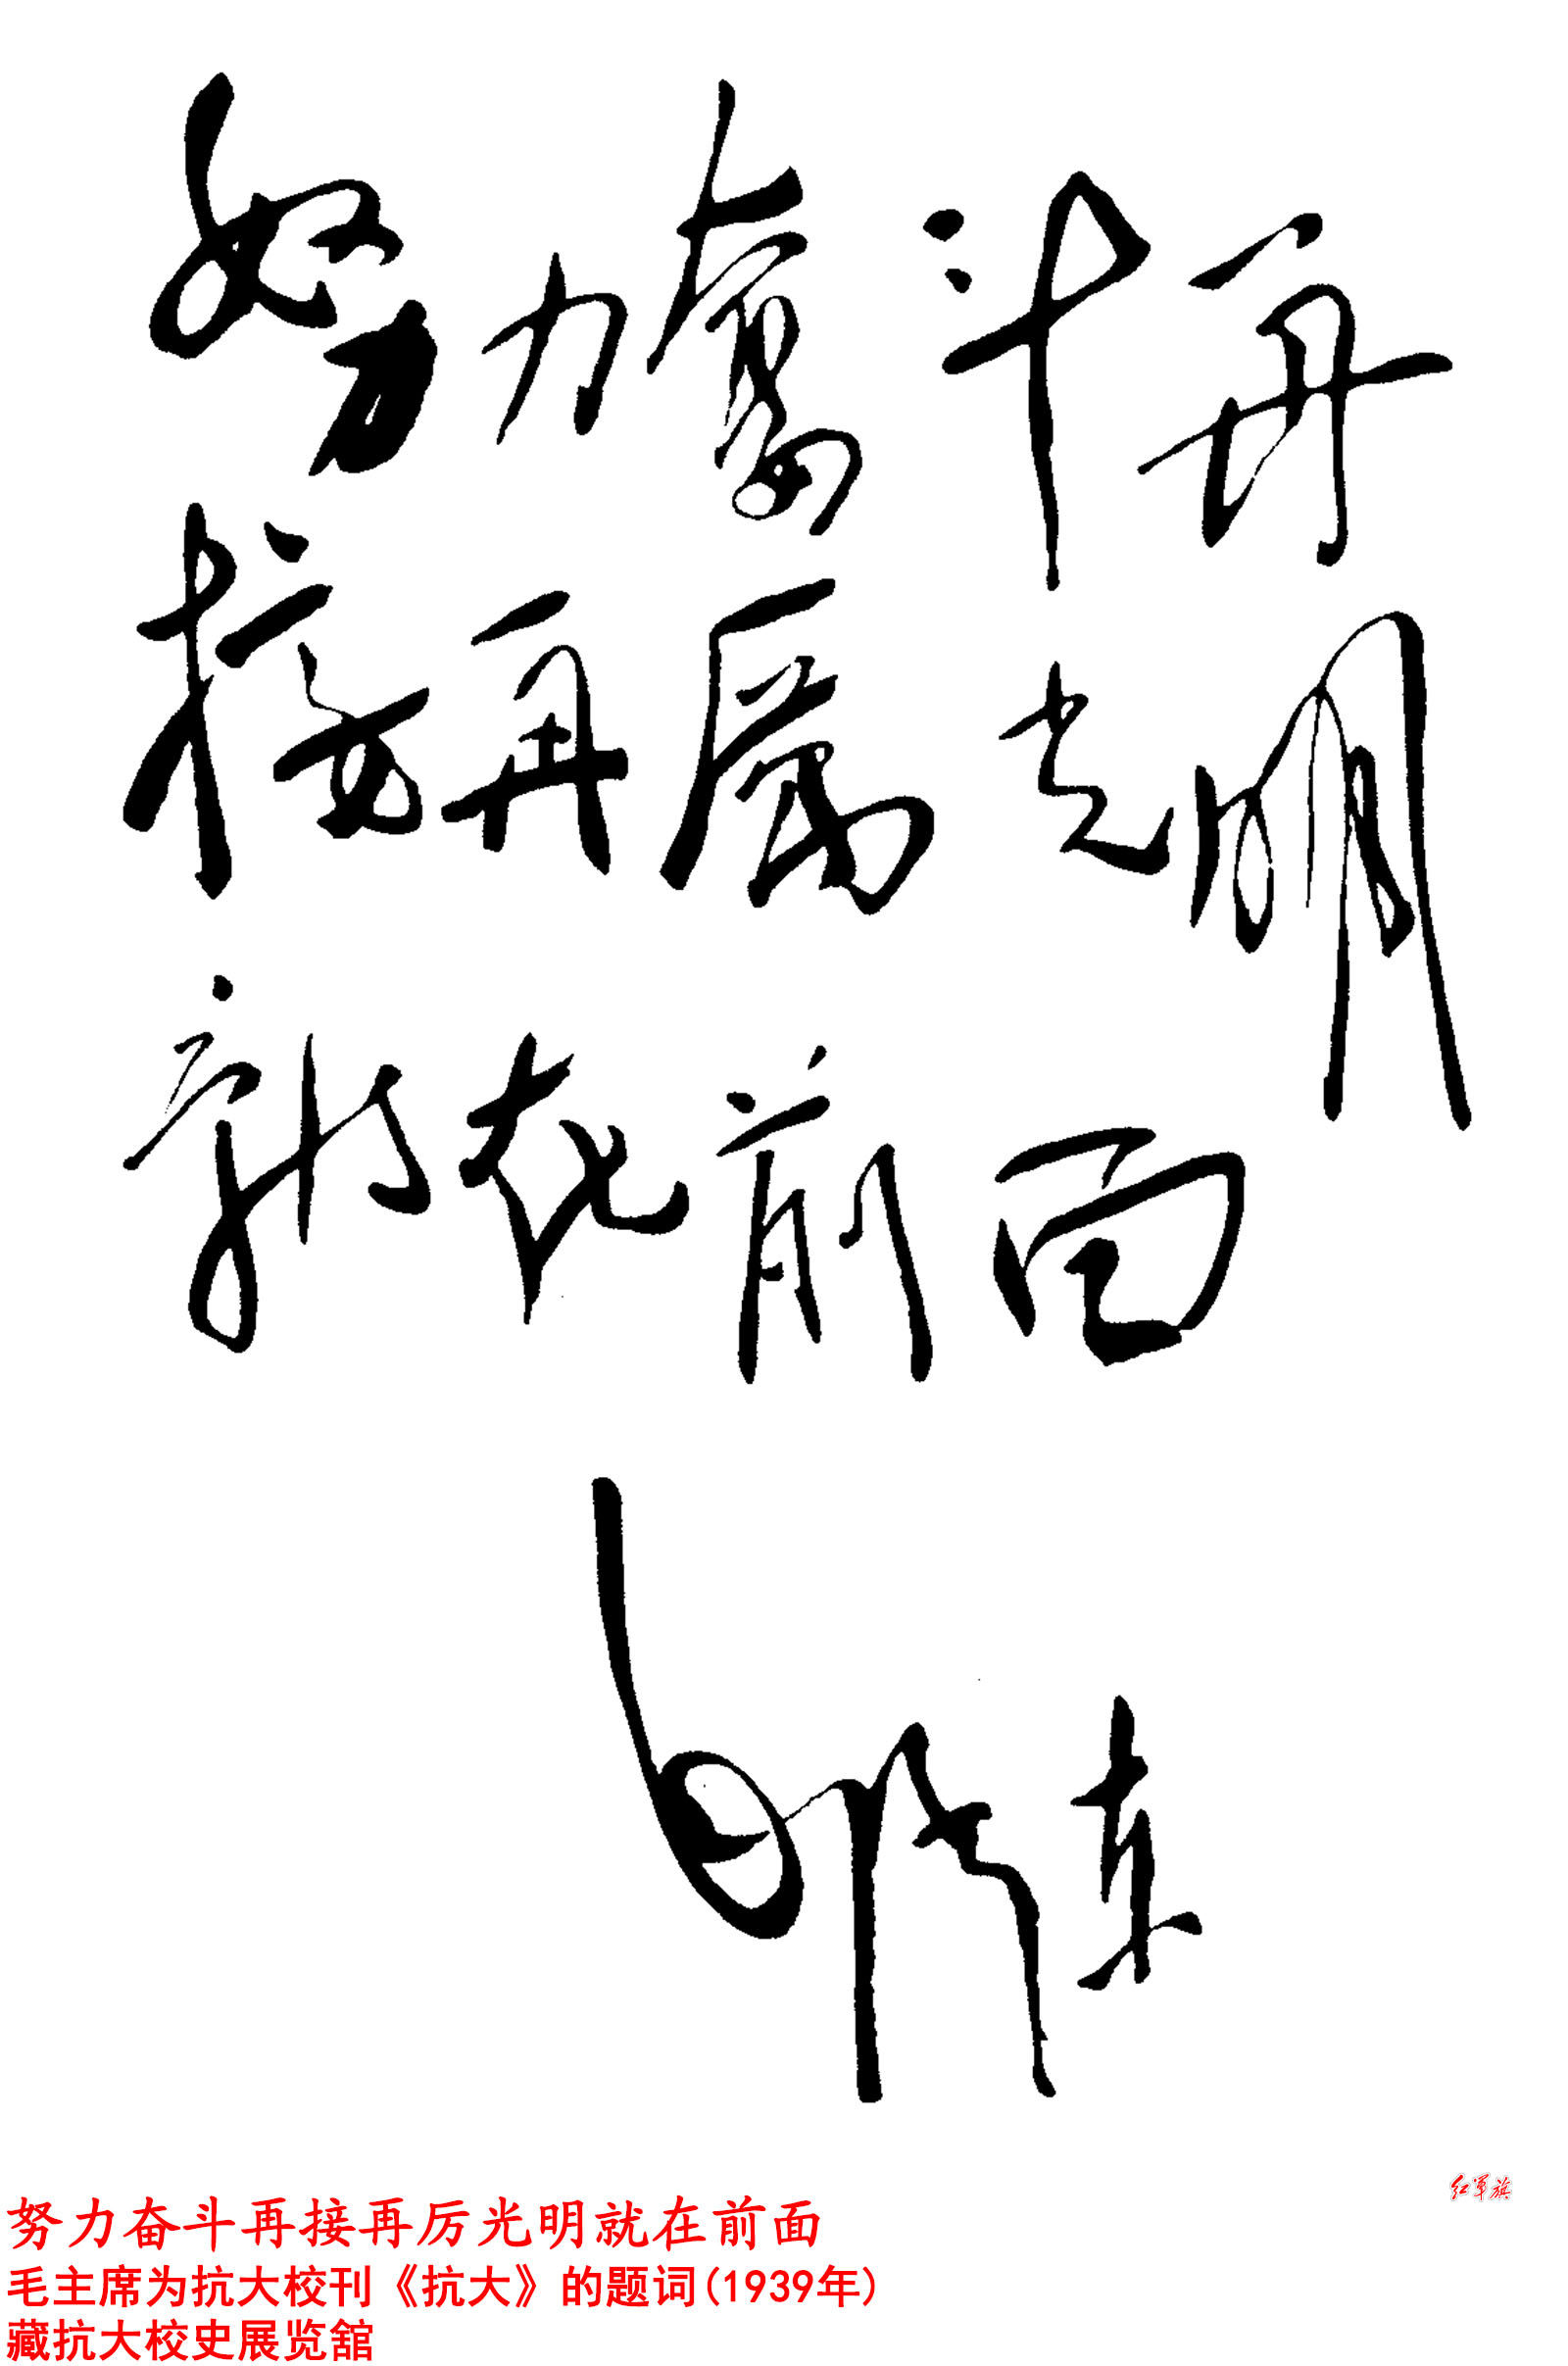 努力奋斗再
接再厉光明
就在前面
毛泽东
红军旗
努力奋斗再接再厉光明就在前面
毛主席为抗大校刊《抗大》的题词(1939年)
藏抗大校史展览馆